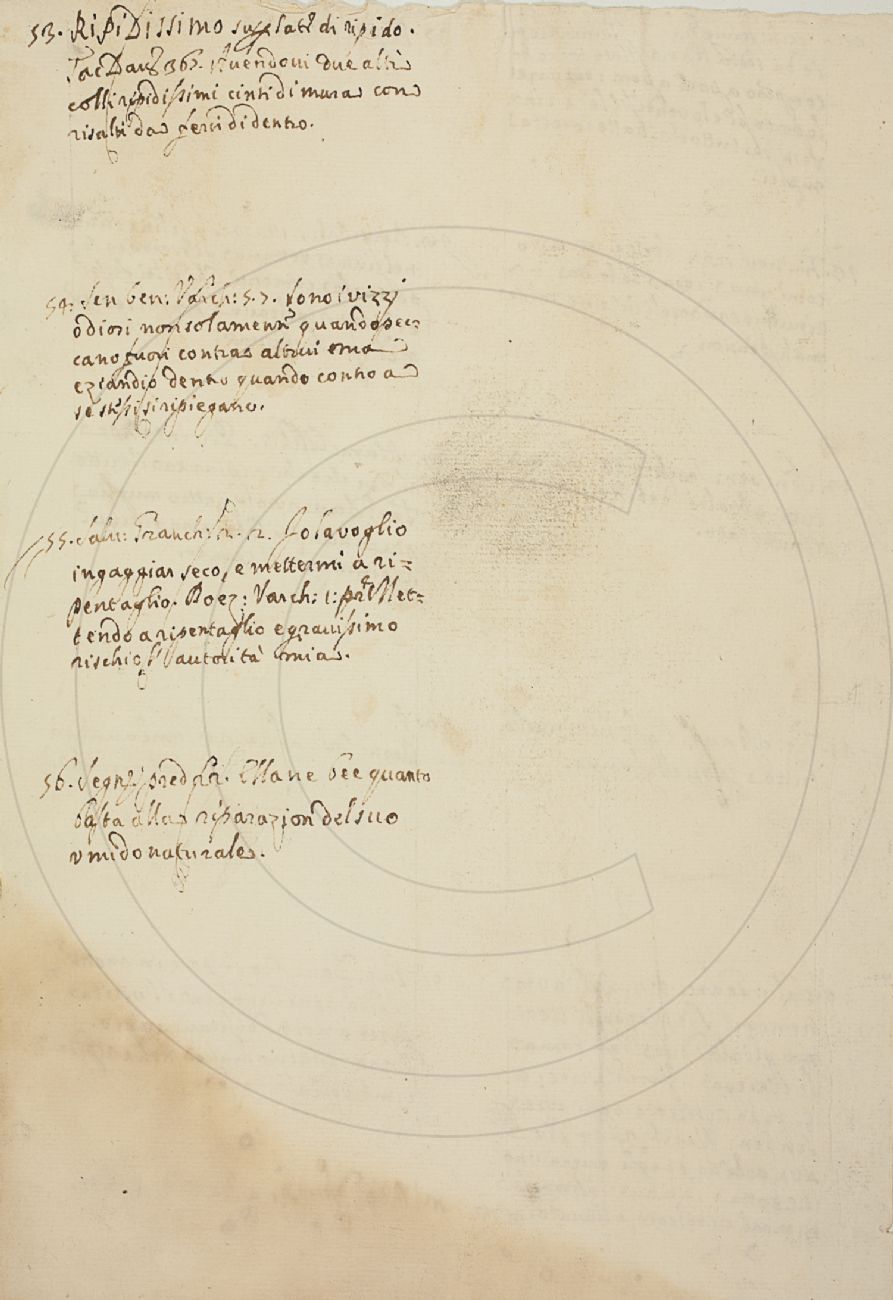 53. Ripidissimo superlatº di ripido.
Tac Dav: 367. Avendovi due alti
colli ripidissimi cinti di mura con
risalti da ferir di dentro.
54. Sen ben: Varch: 5. 7. Sono i vizzj
odiosi non solamente quando pec=
cano fuori contra altrui ma
eziandio dentro quando contro a
se stessi si ripiegano.
55. Salv: Granch: 2. Io la voglio
ingaggiar seco, e mettermi a ri=
pentaglio. Boez: Varch: 1: Met=
tendo a ripentaglio e gravissimo
rischio l'autorità mia.
56. Segn: pred Ma ne bee quanto
basta alla riparazion del suo
umido naturale.